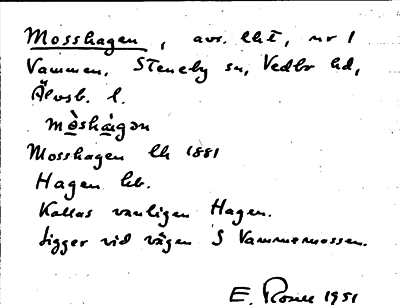 Mosshagen, avs. lht, nr 1
Vammen, Steneby sn, Vedbo hd,
Älvsb. l.
mòshàgən
Mosshagen lh 1881
Hagen hb.
Kallas vanligen Hagen.
Ligger vid vägen S Vammemossen.
E. 1951